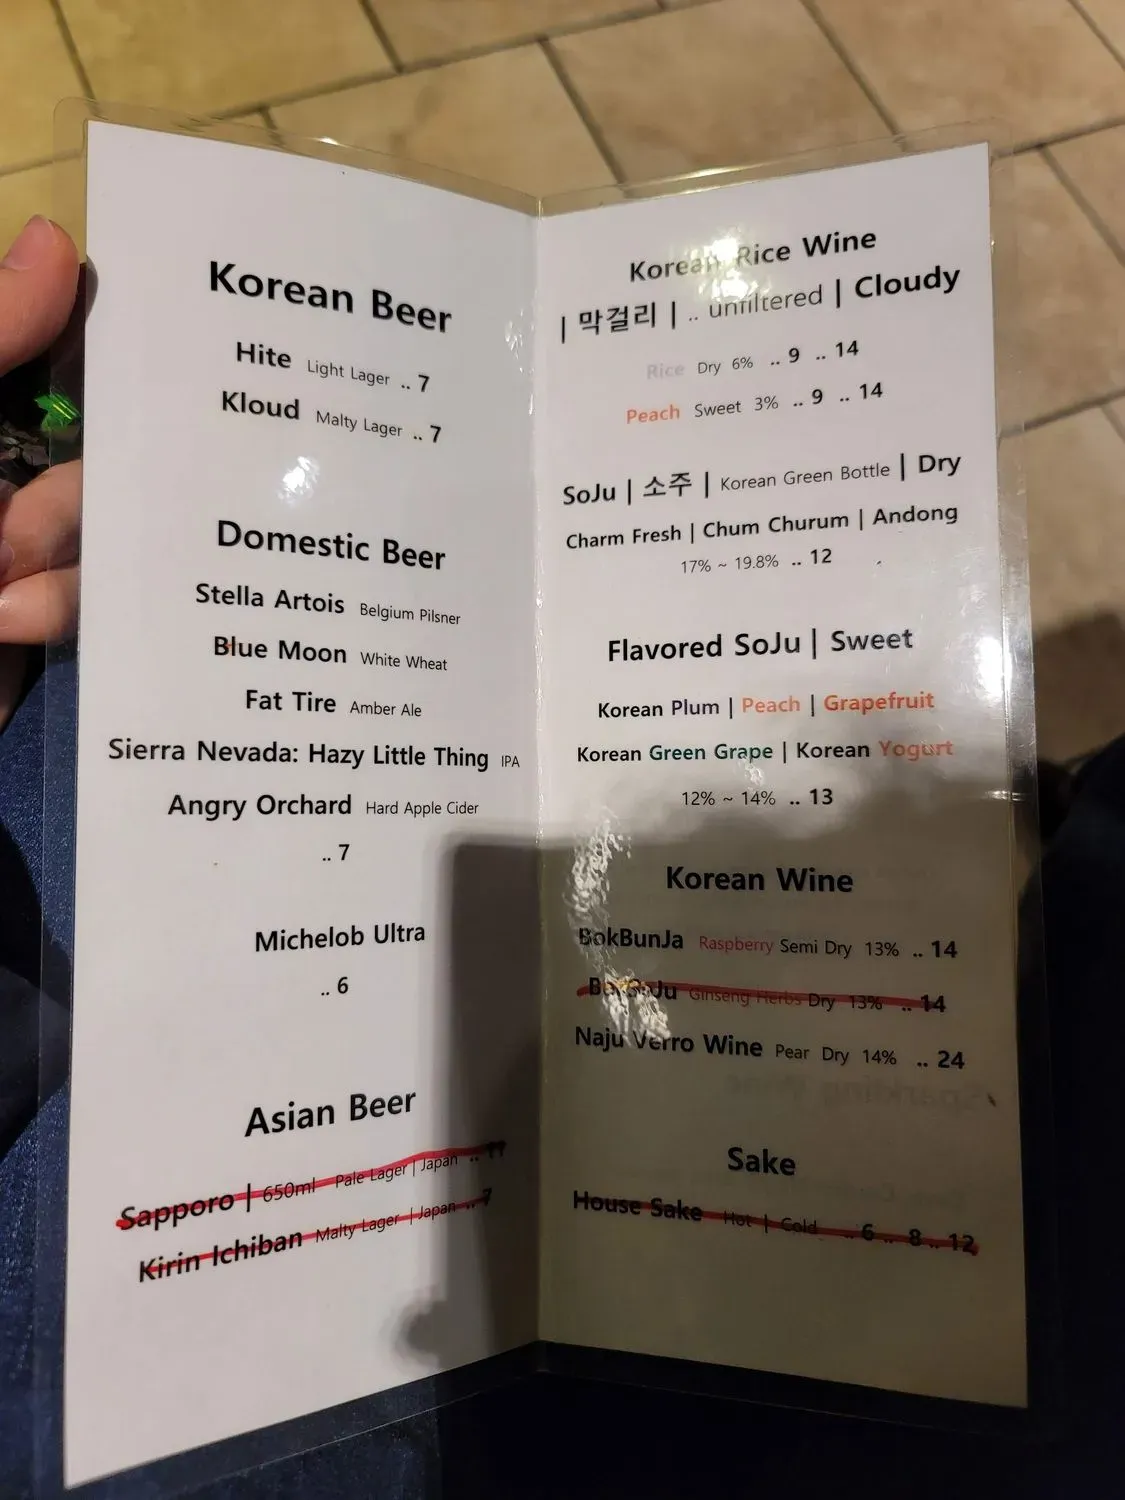 Korean Beer
Hite Light Lager .. 7
Kloud Malty Lager .. 7
Domestic Beer
Stella Artois Belgium Pilsner
Blue Moon White Wheat
Fat Tire Amber Ale
Sierra Nevada: Hazy Little Thing IPA
Angry Orchard Hard Apple Cider
.. 7
Michelob Ultra
.. 6
Asian Beer
Sapporo | 650ml Pale Lager | Japan .. 11
Kirin Ichiban Malty Lager | Japan .. 7
Korean Rice Wine
| 막걸리 | .. unfiltered | Cloudy
Rice Dry 6% .. 9 .. 14
Peach Sweet 3% .. 9 .. 14
SoJu | 소주 | Korean Green Bottle | Dry
Charm Fresh | Chum Churum | Andong
17% ~ 19.8% .. 12
Flavored SoJu | Sweet
Korean Plum | Peach | Grapefruit
Korean Green Grape | Korean Yogurt
12% ~ 14% .. 13
Korean Wine
BokBunJa Raspberry Semi Dry 13% .. 14
Ginseng Herbs Dry 13% .. 14
Naju Verro Wine Pear Dry 14% .. 24
Sake
House Sake Hot | Cold .. 6 .. 8 .. 12